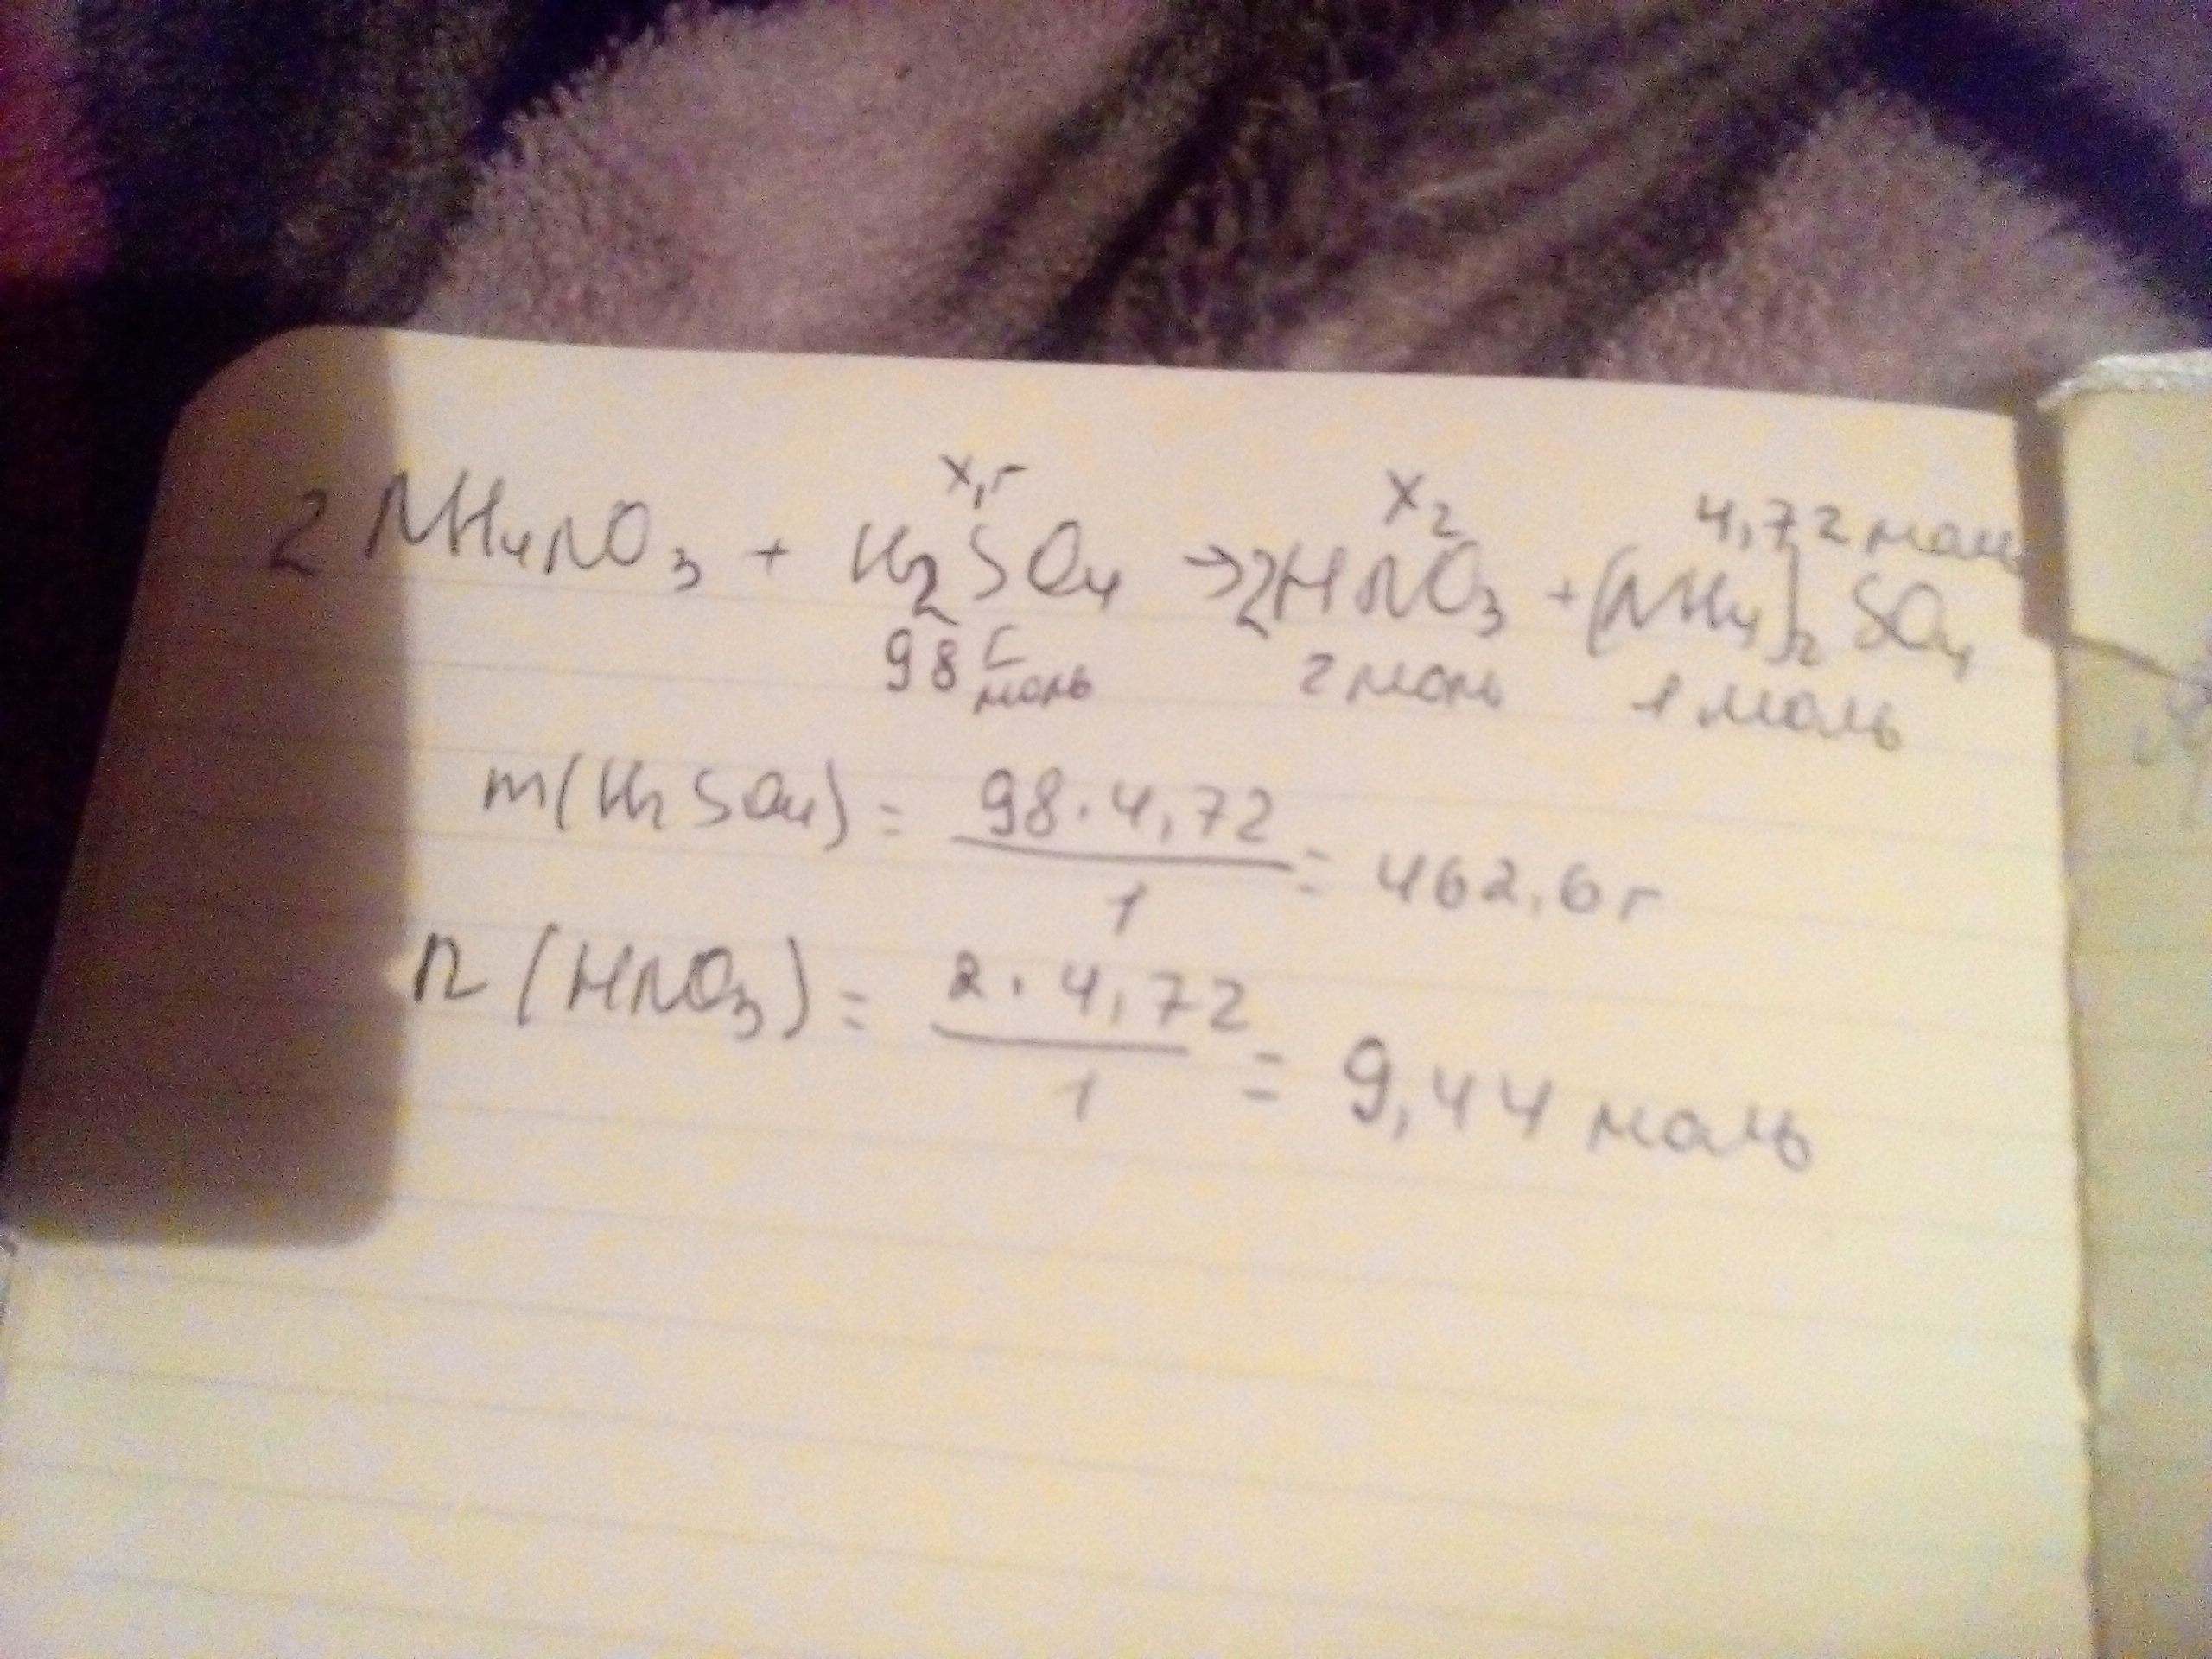 x₁г x₂ 4,72 моль
2NH₄NO₃ + H₂SO₄ → 2HNO₃ + (NH₄)₂SO₄
98 г/моль 2 моль 1 моль
m(H₂SO₄) = 98·4,72/1 = 462,6 г
n(HNO₃) = 2·4,72/1 = 9,44 моль